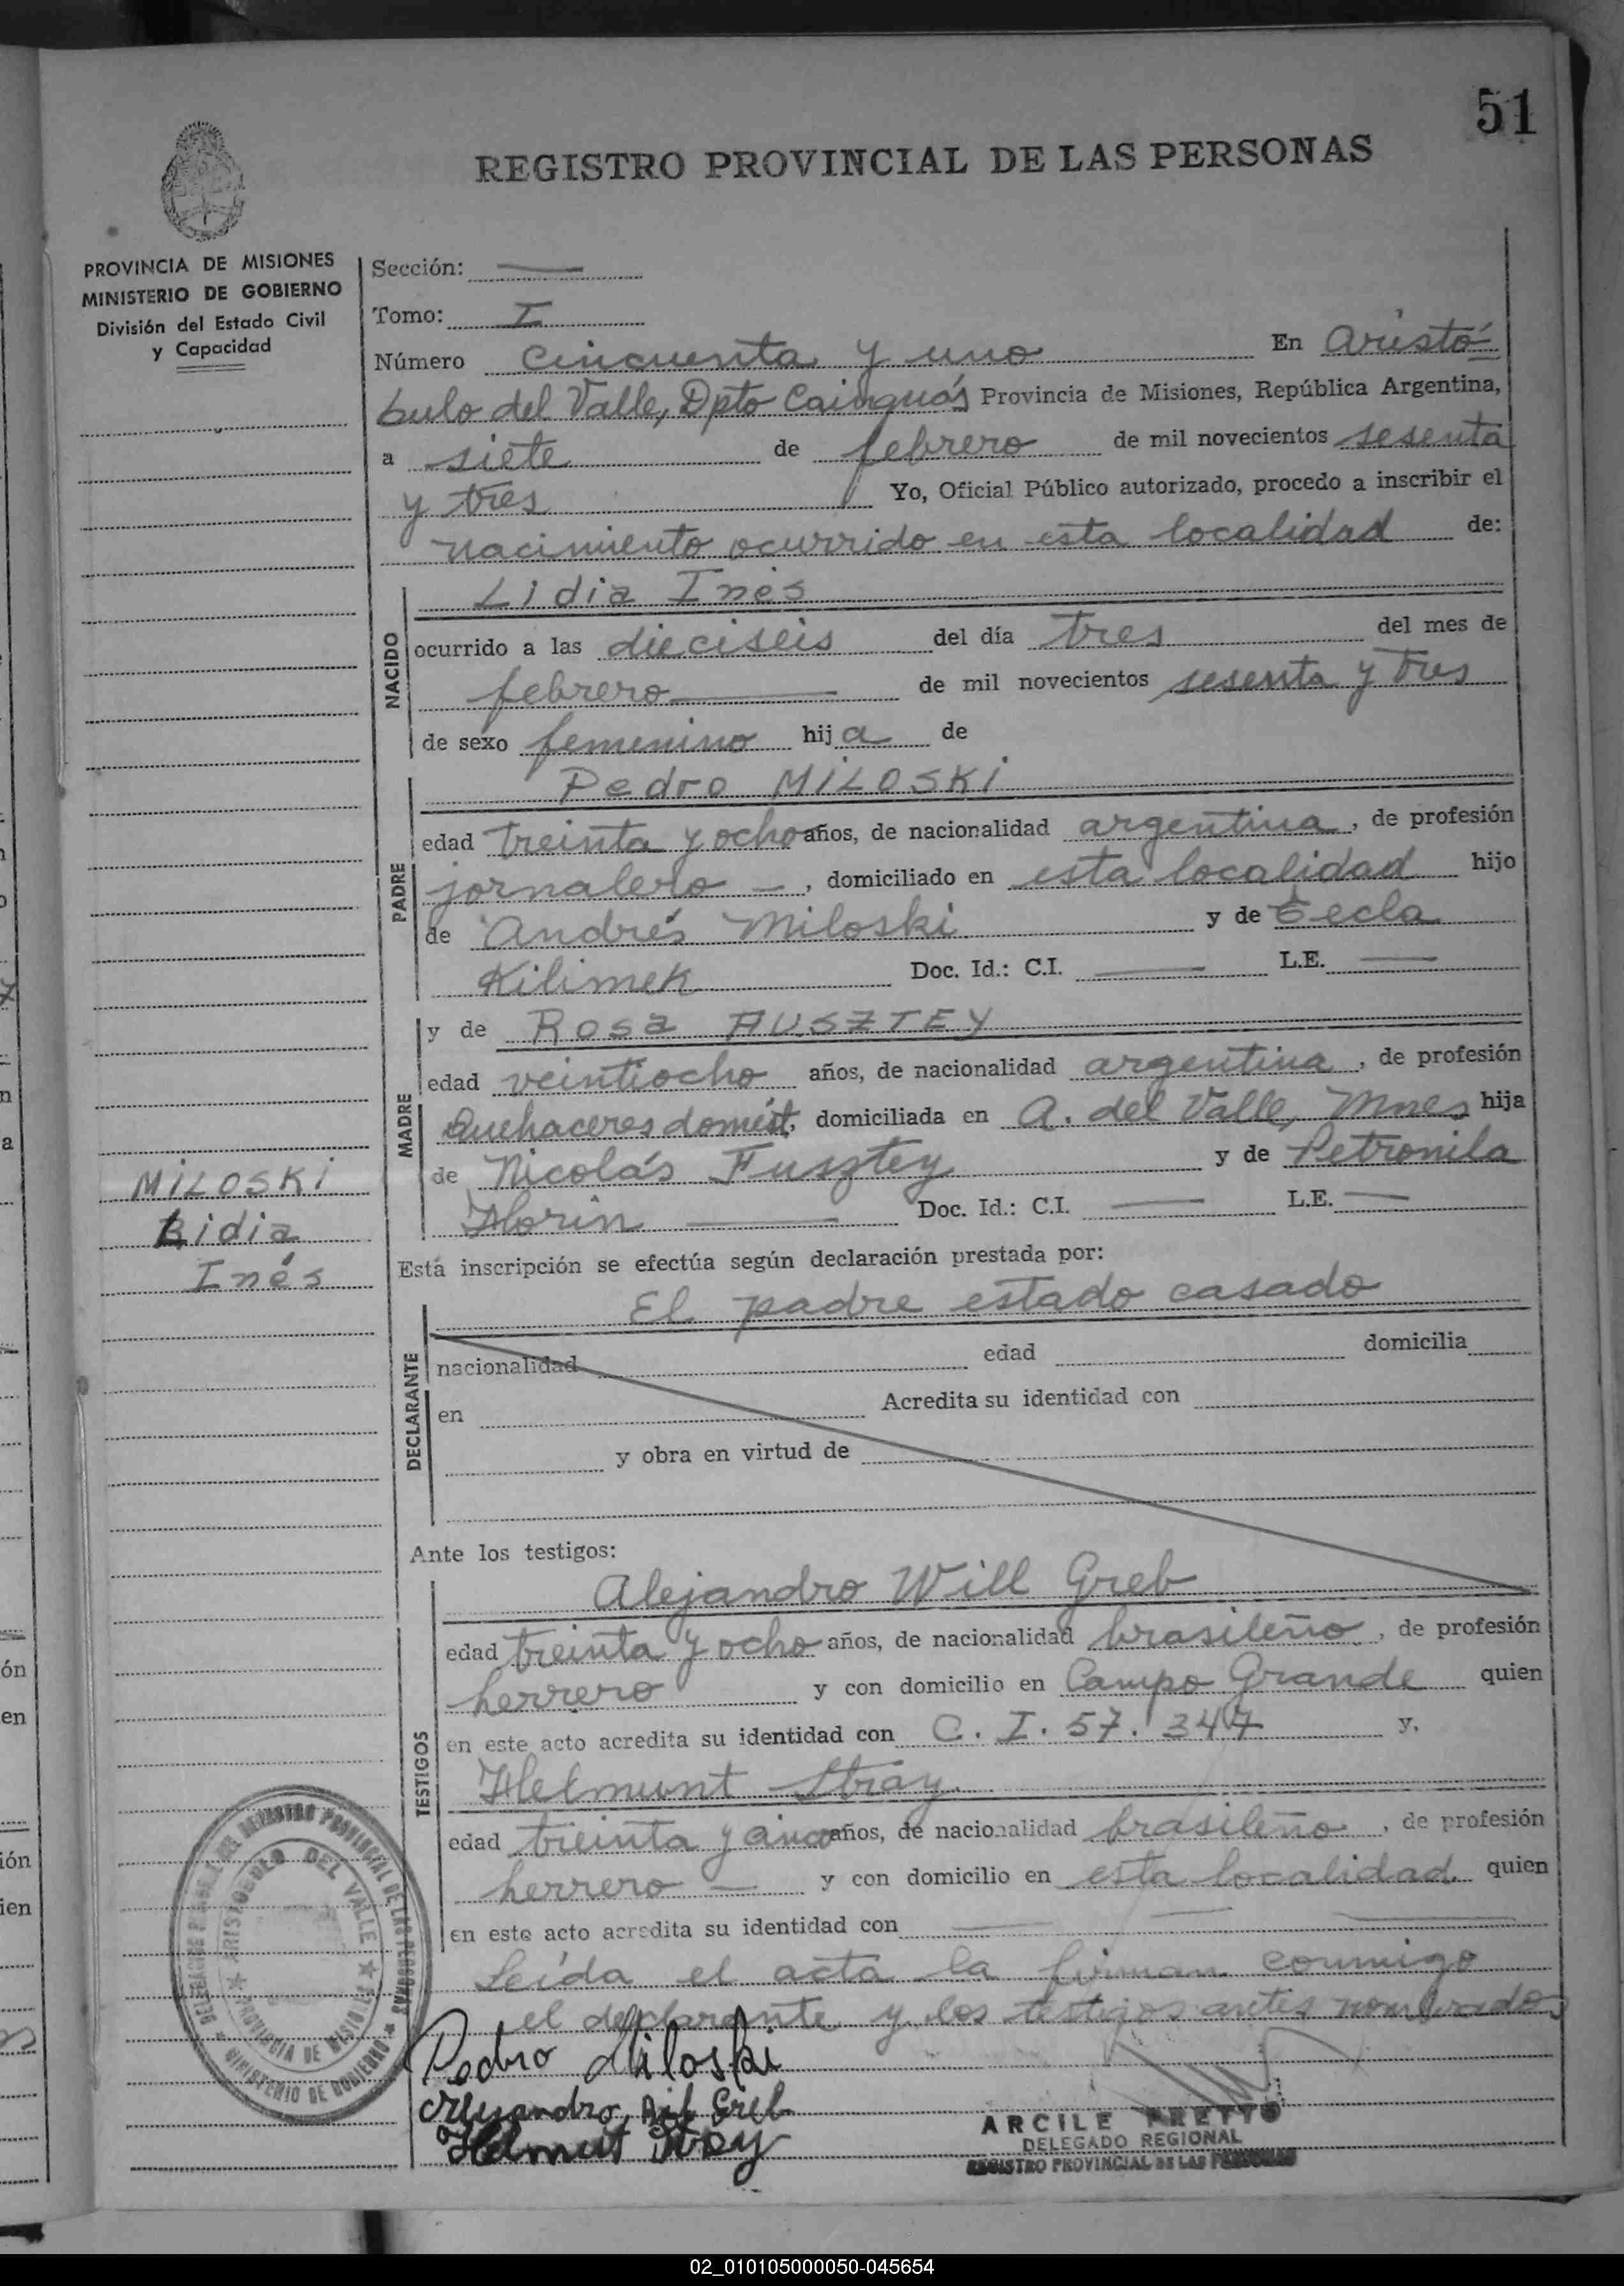 51
REGISTRO PROVINCIAL DE LAS PERSONAS
PROVINCIA DE MISIONES
MINISTERIO DE GOBIERNO
División del Estado Civil
y Capacidad
Sección: —
Tomo: I
Número cincuenta y uno En Aristó
bulo del Valle, Dpto Cainguás Provincia de Misiones, República Argentina,
a siete de febrero de mil novecientos sesenta
y tres Yo, Oficial Público autorizado, procedo a inscribir el
nacimiento ocurrido en esta localidad de:
NACIDO
Lidia Inés
ocurrido a las dieciseis del día tres del mes de
febrero — de mil novecientos sesenta y tres
de sexo femenino hija de
PADRE
Pedro MiLOSKi
edad treinta y ocho años, de nacionalidad argentina, de profesión
jornalero —, domiciliado en esta localidad hijo
de Andrés Miloski y de Tecla
Kilimek Doc. Id.: C.I. — L.E. —
MADRE
y de Rosa FUSZTEY
edad veintiocho años, de nacionalidad argentina, de profesión
Quehaceres domést, domiciliada en A. del Valle, Mnes hija
de Nicolás Fusztey y de Petronila
Horin — Doc. Id.: C.I. — L.E. —
MiLOSKi
Lidia
Inés
Esta inscripción se efectúa según declaración prestada por:
DECLARANTE
El padre estado casado
nacionalidad edad domicilia
en Acredita su identidad con
y obra en virtud de
Ante los testigos:
TESTIGOS
Alejandro Will Greb
edad treinta y ocho años, de nacionalidad brasileño, de profesión
herrero y con domicilio en Campo Grande quien
en este acto acredita su identidad con C. I. 57. 347 y,
Helmunt Stray
edad treinta y cinco años, de nacionalidad brasileño, de profesión
herrero — y con domicilio en esta localidad quien
en este acto acredita su identidad con — — —
Leída el acta la firman conmigo
el declarante y los testigos antes nombrados
Pedro Miloski
Alejandro Greb
Helmut Stray
ARCILE PRETTO
DELEGADO REGIONAL
REGISTRO PROVINCIAL DE LAS PERSONAS
REGISTRO PROVINCIAL DE LAS PERSONAS
MINISTERIO DE GOBIERNO
ARISTOBULO DEL VALLE
PROVINCIA DE MISIONES
02_010105000050-045654